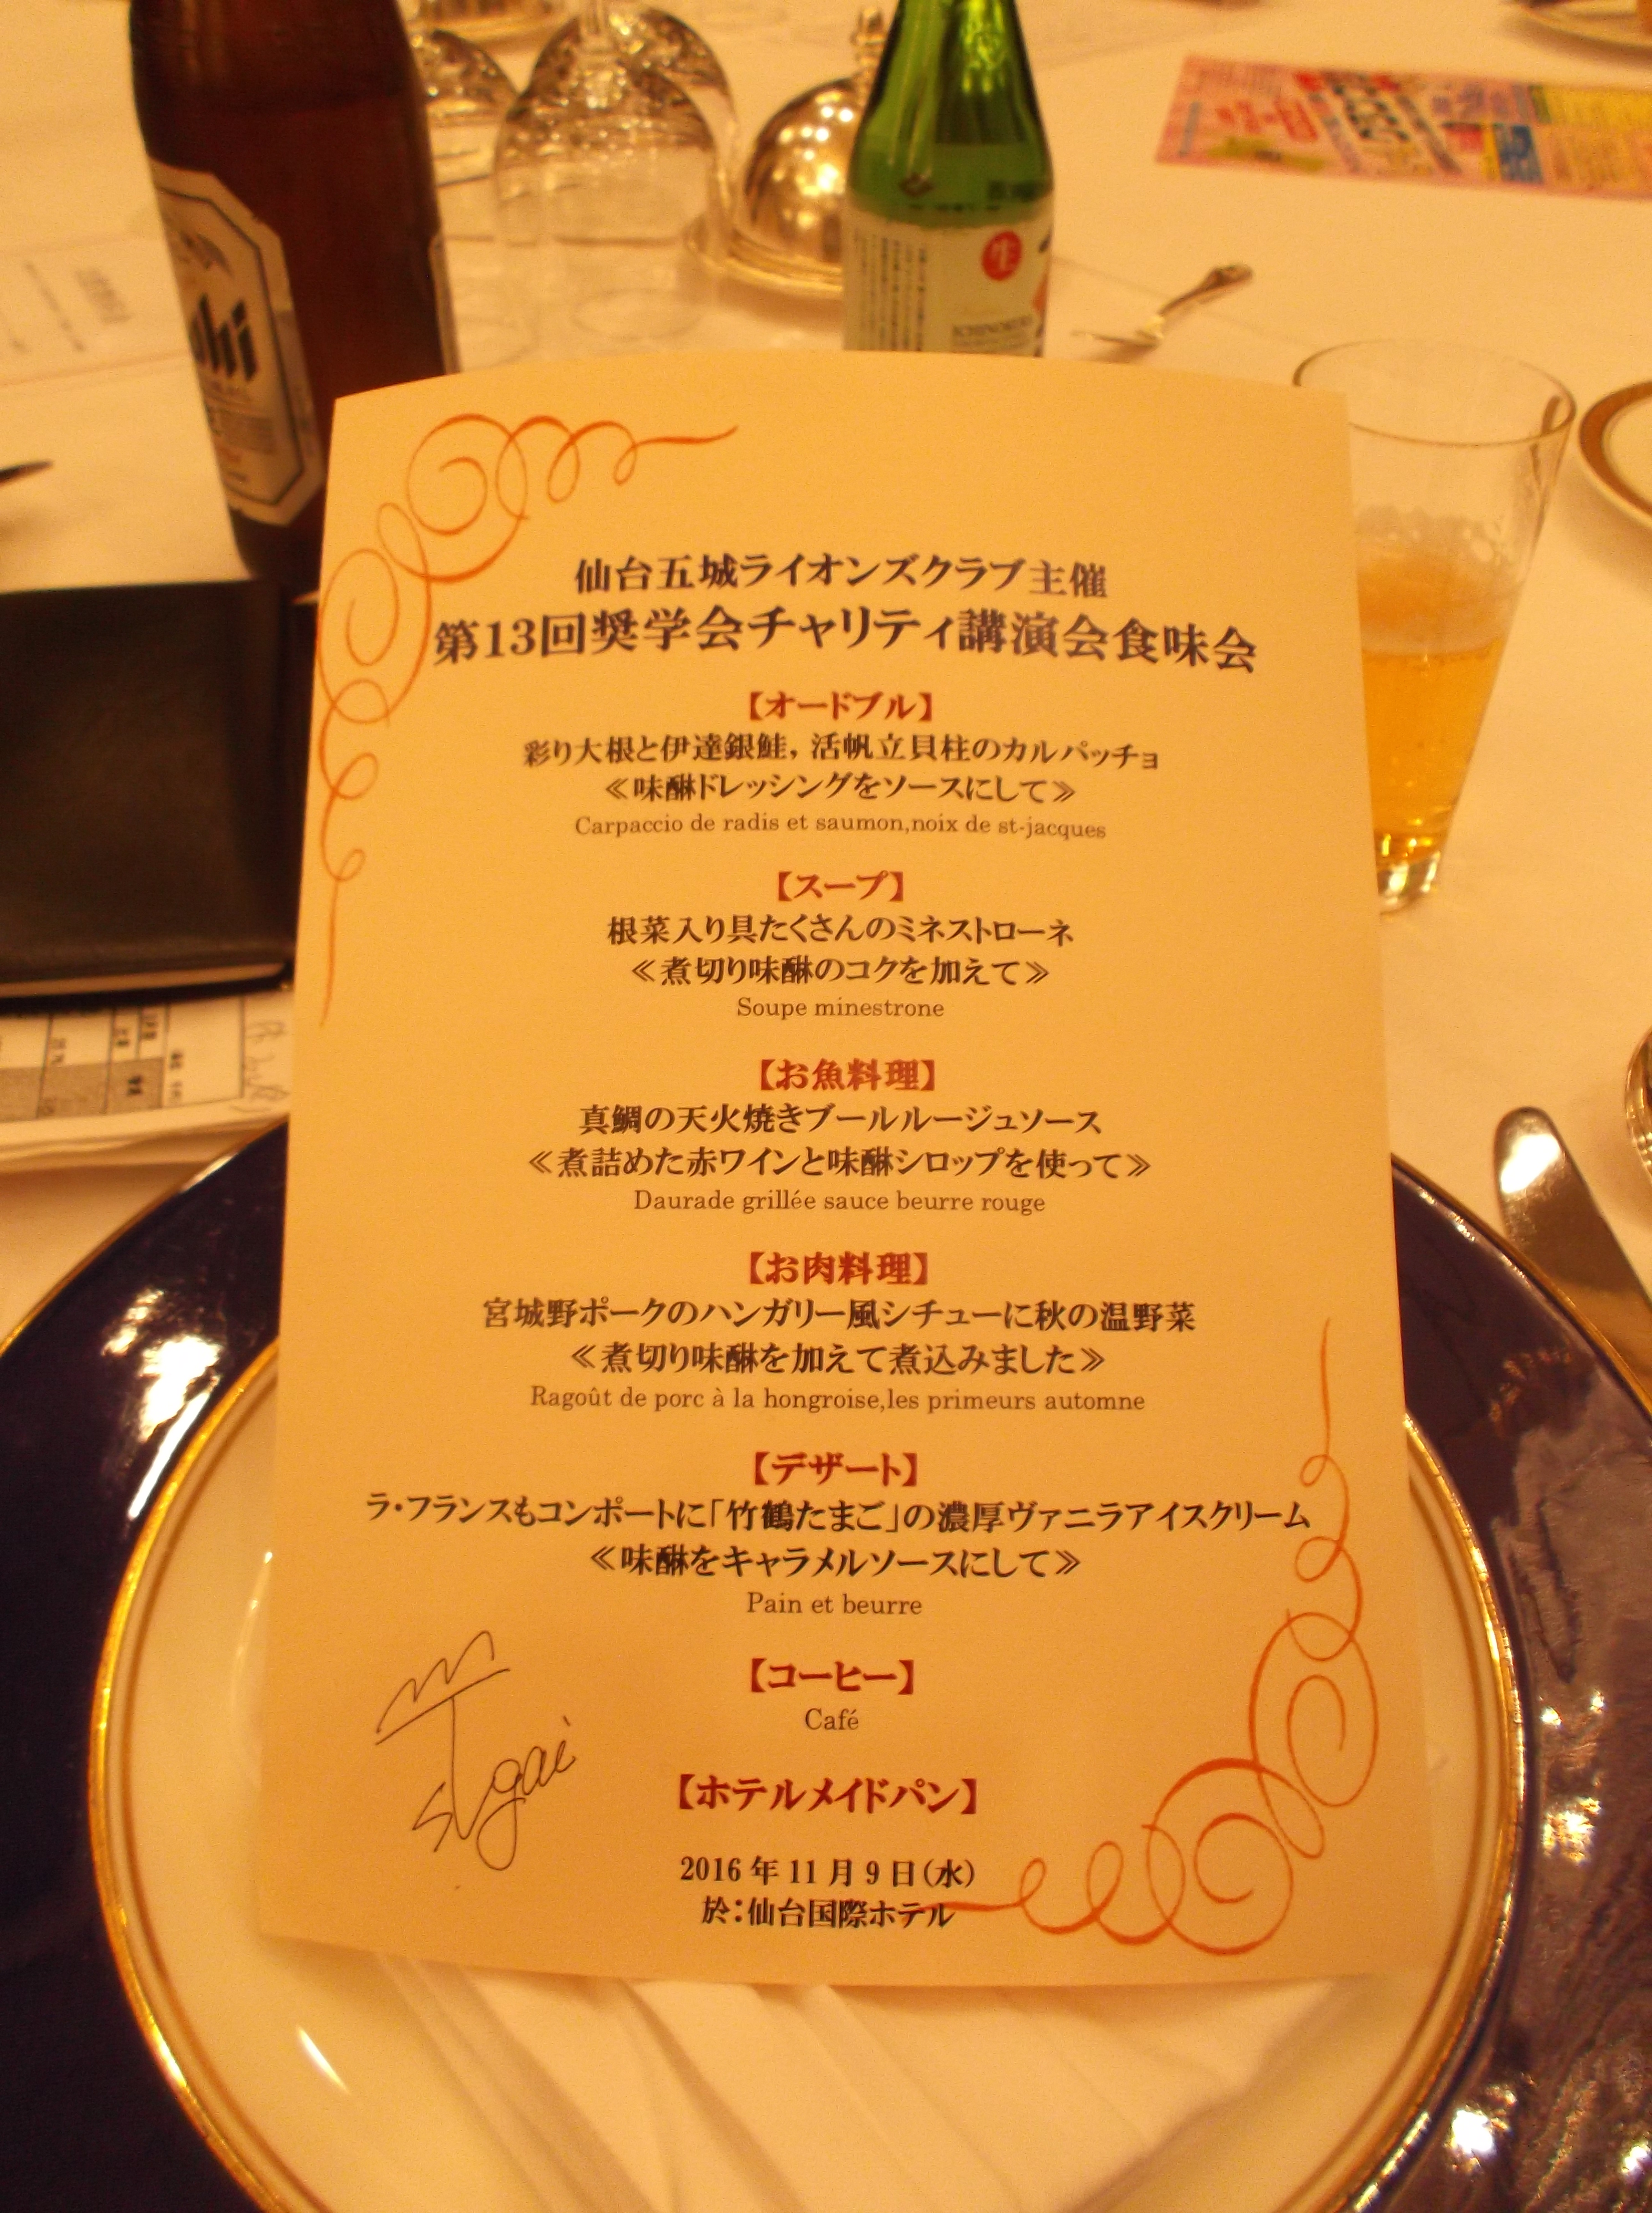 生
仙台五城ライオンズクラブ主催
第13回奨学会チャリティ講演会食味会
【オードブル】
彩り大根と伊達銀鮭，活帆立貝柱のカルパッチョ
≪味醂ドレッシングをソースにして≫
Carpaccio de radis et saumon,noix de st-jacques
【スープ】
根菜入り具たくさんのミネストローネ
≪煮切り味醂のコクを加えて≫
Soupe minestrone
【お魚料理】
真鯛の天火焼きブールルージュソース
≪煮詰めた赤ワインと味醂シロップを使って≫
Daurade grillée sauce beurre rouge
【お肉料理】
宮城野ポークのハンガリー風シチューに秋の温野菜
≪煮切り味醂を加えて煮込みました≫
Ragoût de porc à la hongroise,les primeurs automne
【デザート】
ラ・フランスもコンポートに「竹鶴たまご」の濃厚ヴァニラアイスクリーム
≪味醂をキャラメルソースにして≫
Pain et beurre
【コーヒー】
Café
【ホテルメイドパン】
2016年11月9日(水)
於：仙台国際ホテル